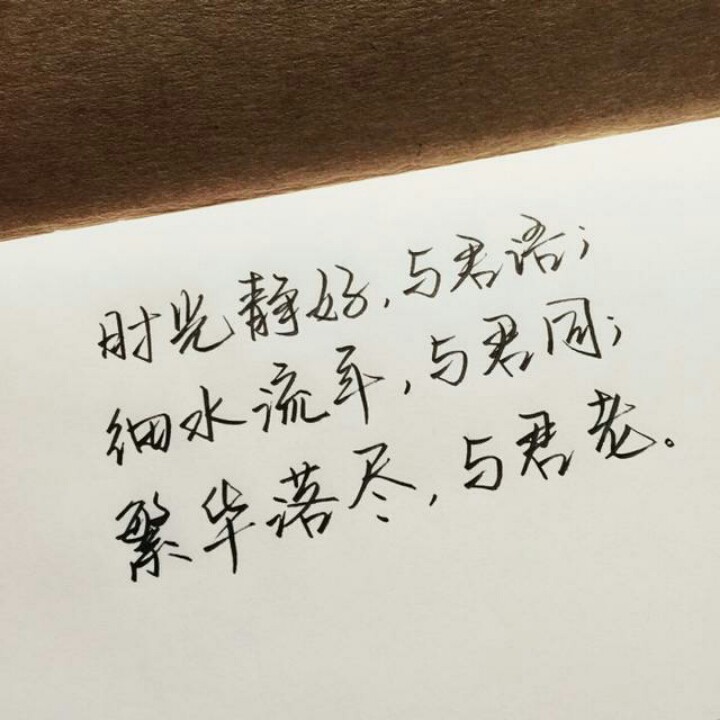 时光静好,与君语;
细水流年,与君同;
繁华落尽,与君老。